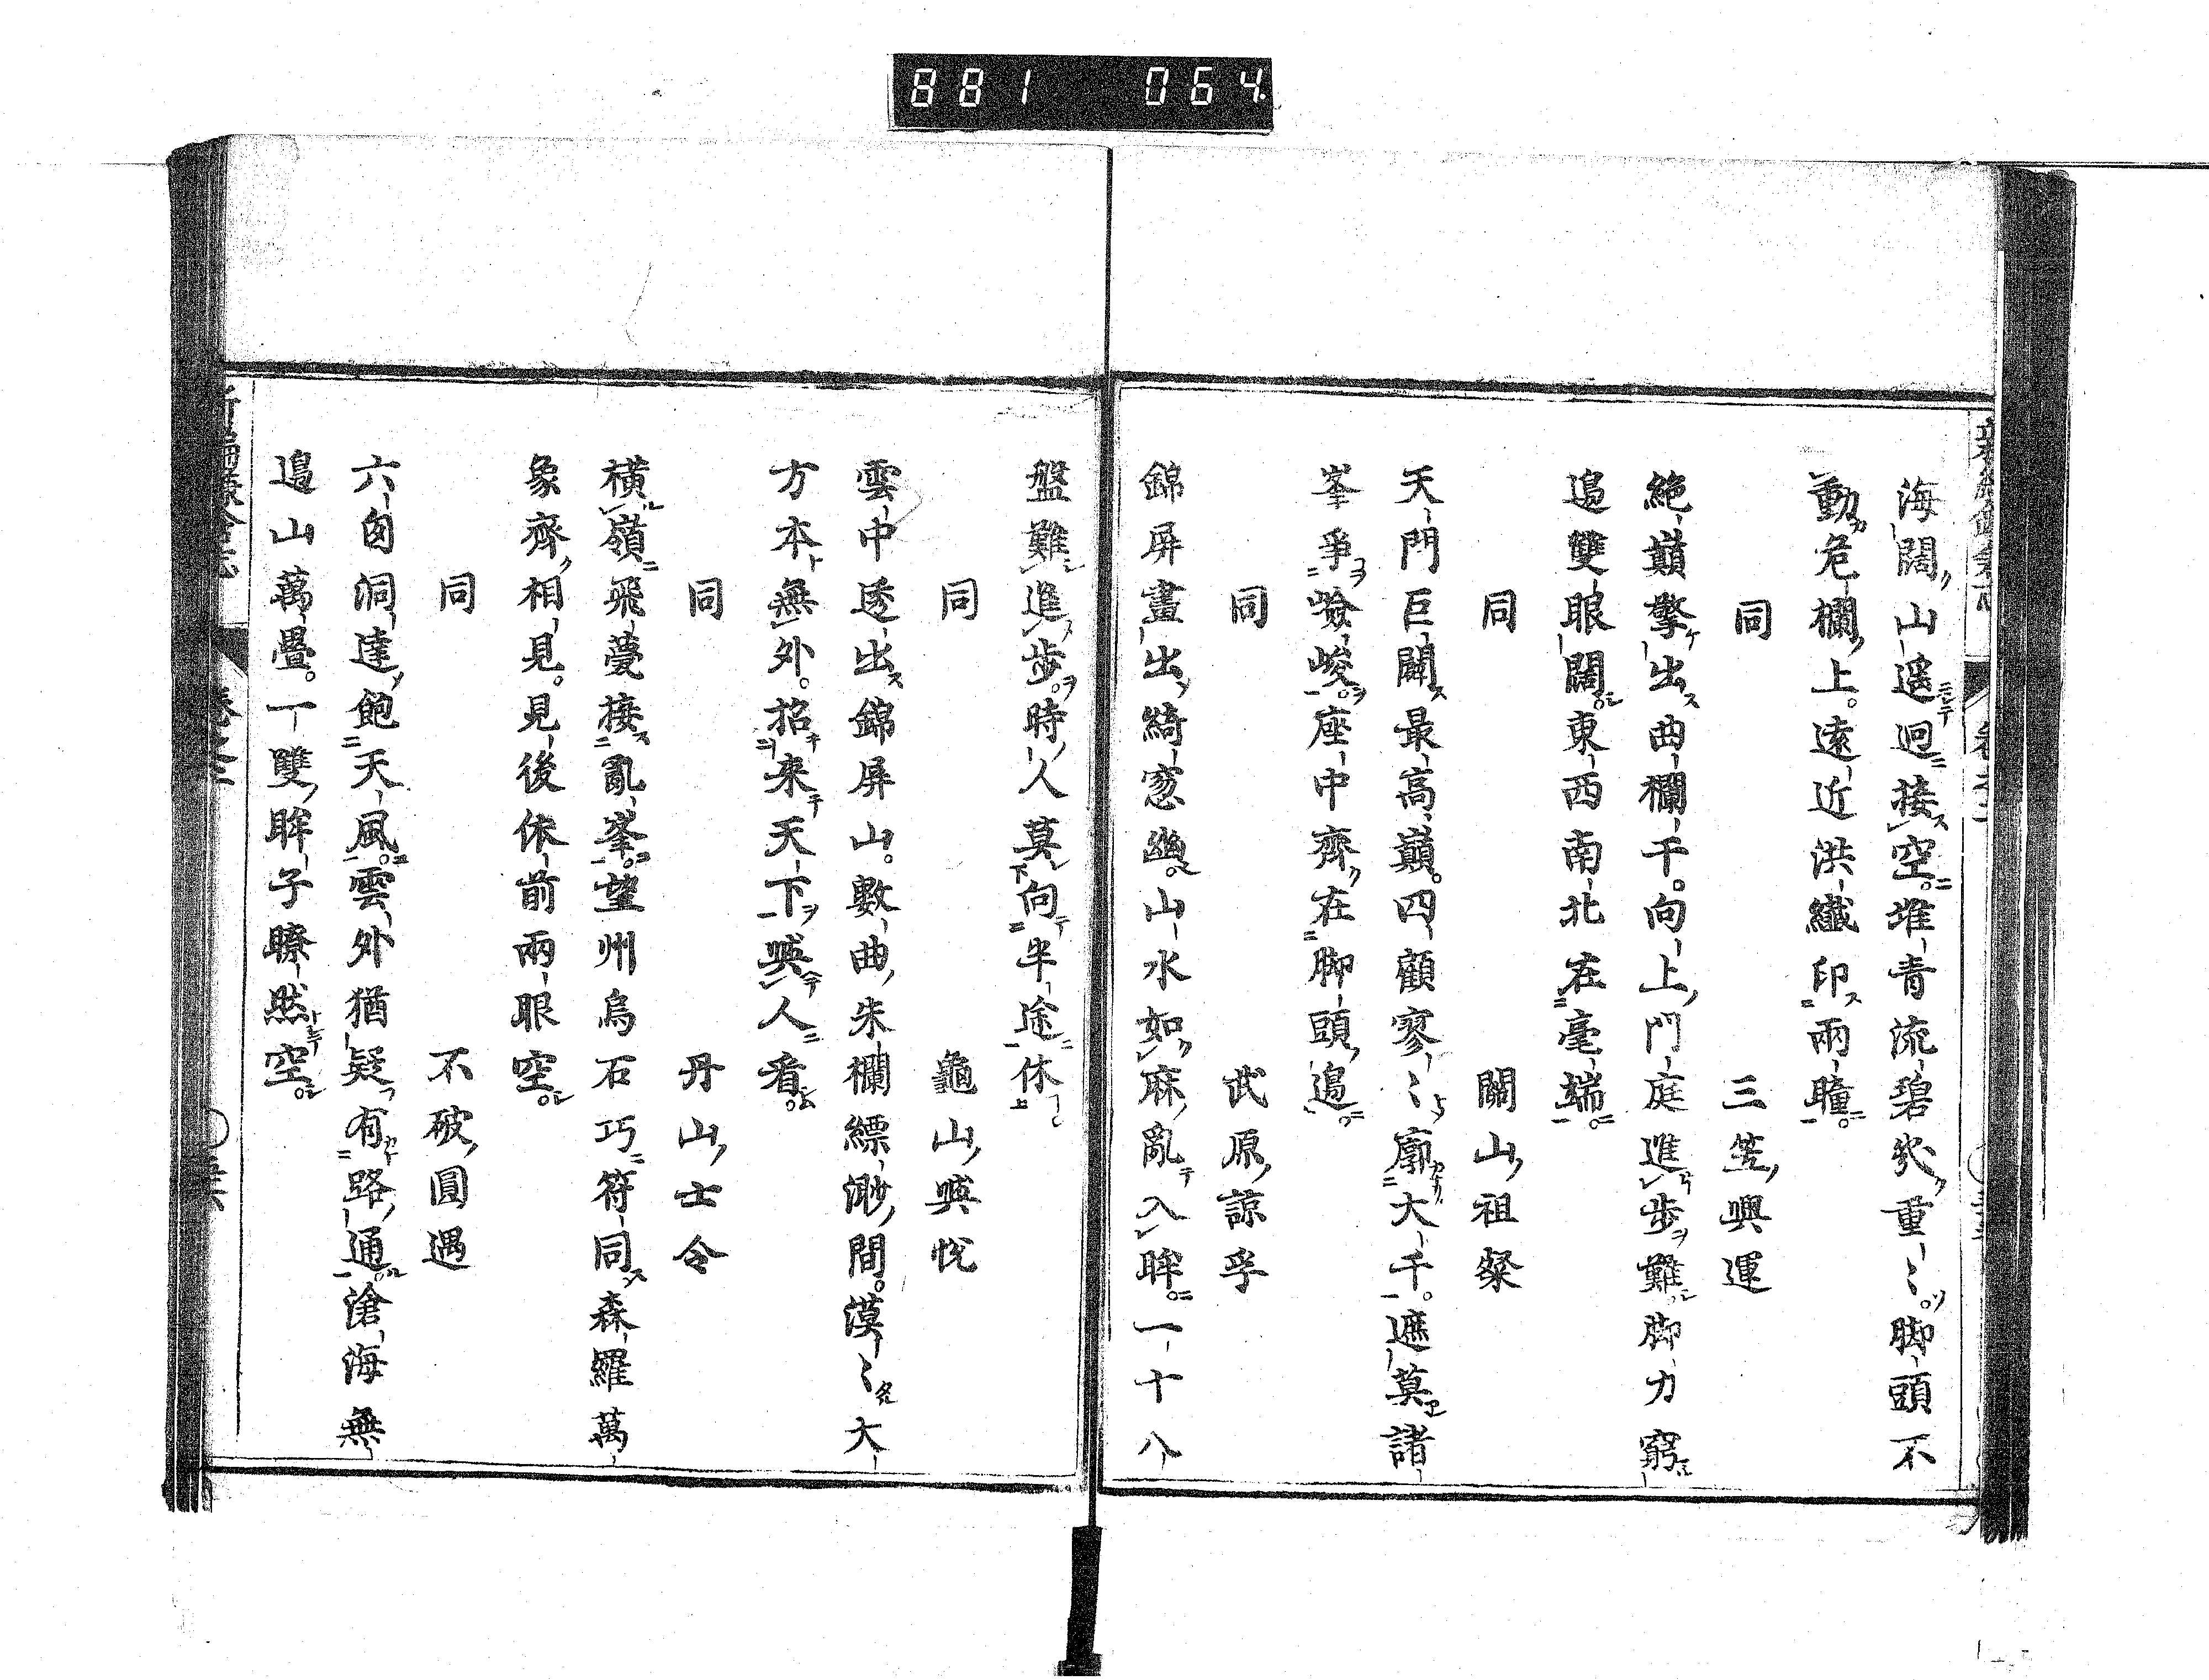 881 064
海闊山遥迥接空。堆青流碧
重〻。脚頭不
動危欄上。遠近洪纖印兩瞳。
同 三笠興運
絶巓擎出曲欄干。向上門庭進步難脚力窮
邉雙眼闊。東西南北在毫端。
同 關山祖粲
天門巨闢最高巓。四顧寥〻廓大千。遮莫諸
峯爭嶮峻。座中齊在脚頭邉。
同 武原諒孚
錦屏畫出綺窓幽。山水如麻亂入眸。一十八
盤難進步。時人莫向半途休
同 龜山
悅
雲中透出錦屏山。數曲朱欄縹渺間。漠〻大
方本無外。招來天下與人看。
同 丹山士令
橫嶺飛夢接亂峯。望州烏石巧符同森羅萬
象齊相見。見後休前兩眼空。
同 不破圓遇
六囱洞達飽天風。雲外猶疑有路通。滄海無
邉山萬疊。一雙眸子瞭然空。
卷之二